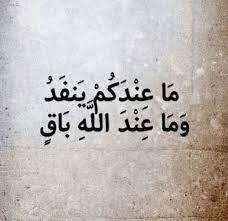 مَا عِنْدَكُمْ يَنفَدُ
وَمَا عِندَ اللَّهِ بَاقٍ